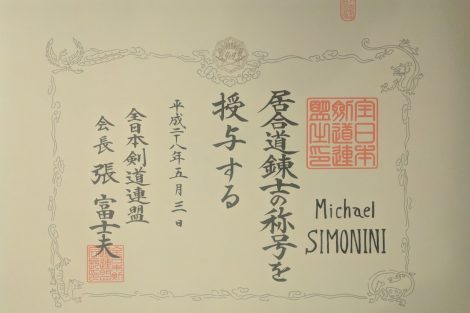 全日本
劍道連
盟之印
Michael
SIMONINI
居合道錬士の称号を
授与する
平成二八年五月三日
全日本剣道連盟
会長 張 富士夫